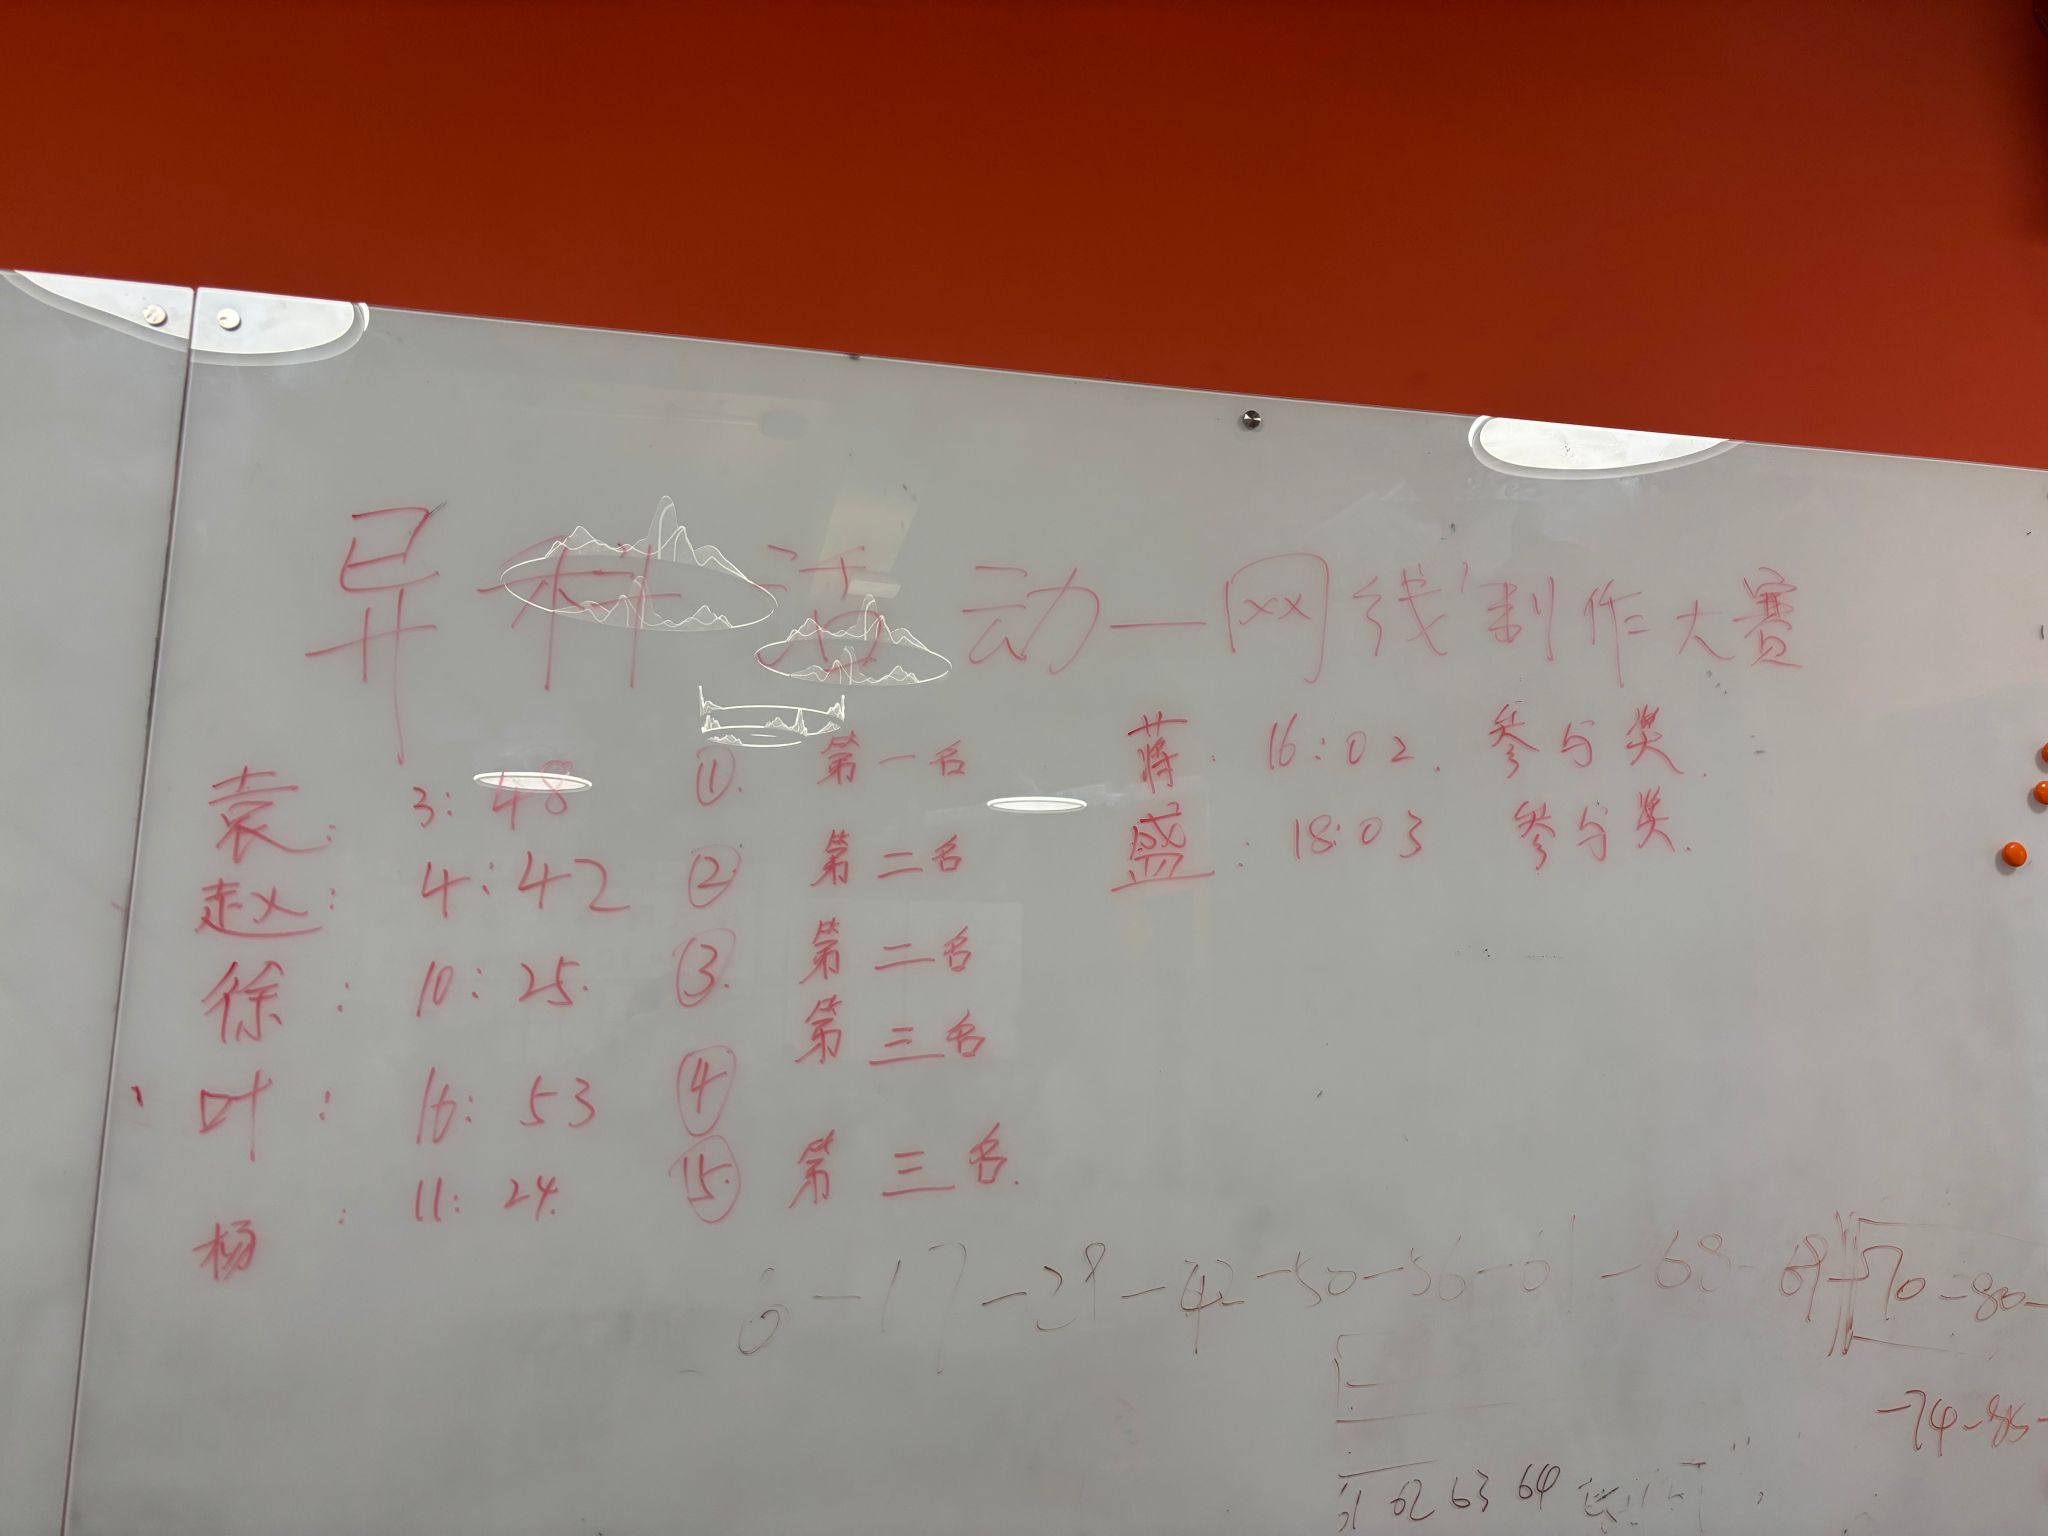 异科活动—网线制作大赛
袁: 3:48 ①. 第一名
赵: 4:42 ② 第二名
徐: 10:25. ③. 第二名
叶: 16:53 ④ 第三名
杨: 11:24. ⑤. 第三名.
蒋: 16:02. 参与奖.
盛: 18:03 参与奖.
6-17-29-42-50-56-61-68-69-70-80-
-74-86-
62 63 64